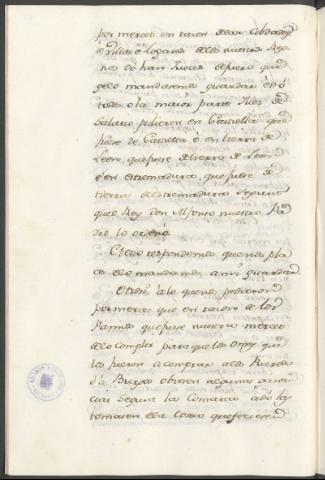 por merced en razon de las cibdades
e villas e logares de los nuestros Reg
nos do han Jueces de fuero que
gelo mandasemos guardar e do
todos o la maior parte Juez de
Salario pidieren en Castiella que
fuese de Castiella e en tierra de
Leon, que fuese de tierra de Leon
e en estremadura que fuese de
tierra de estremadura segunt
que el Rey don Alfonso nuestro Pa
dre lo ordenó
A esto respondemos que nos pla
ce e lo mandamos ansi guardar
Otrosi a lo que nos pedieron
por merced que en razon de los
Pannos que fuese nuestra merced
de lo complir para que los omes que
los fueren a comprar a las
de Burgos obiesen algunas
cias segunt la Comarca a do los
tomasen e la Costa que ficieren